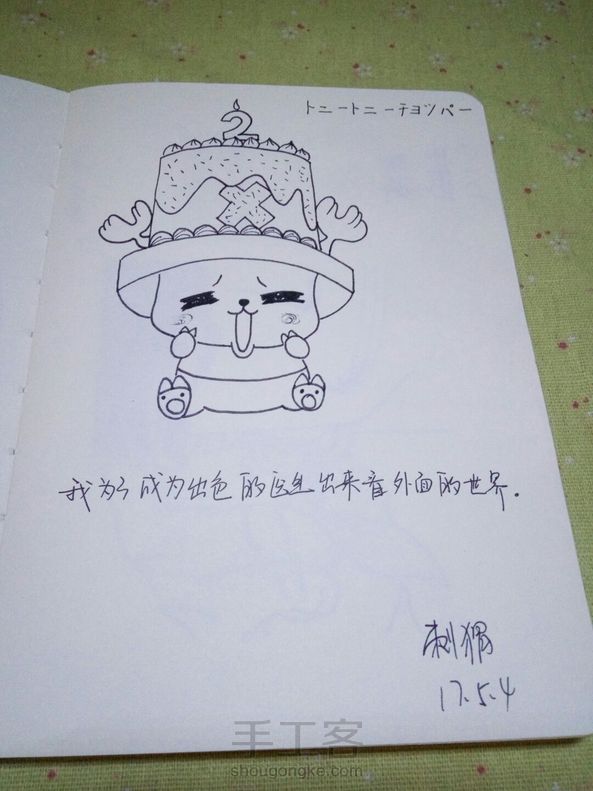 2
トニートニーチョッパー
我为了成为出色的医生出来看外面的世界.
刺猬
17.5.4
手工客
shougongke.com